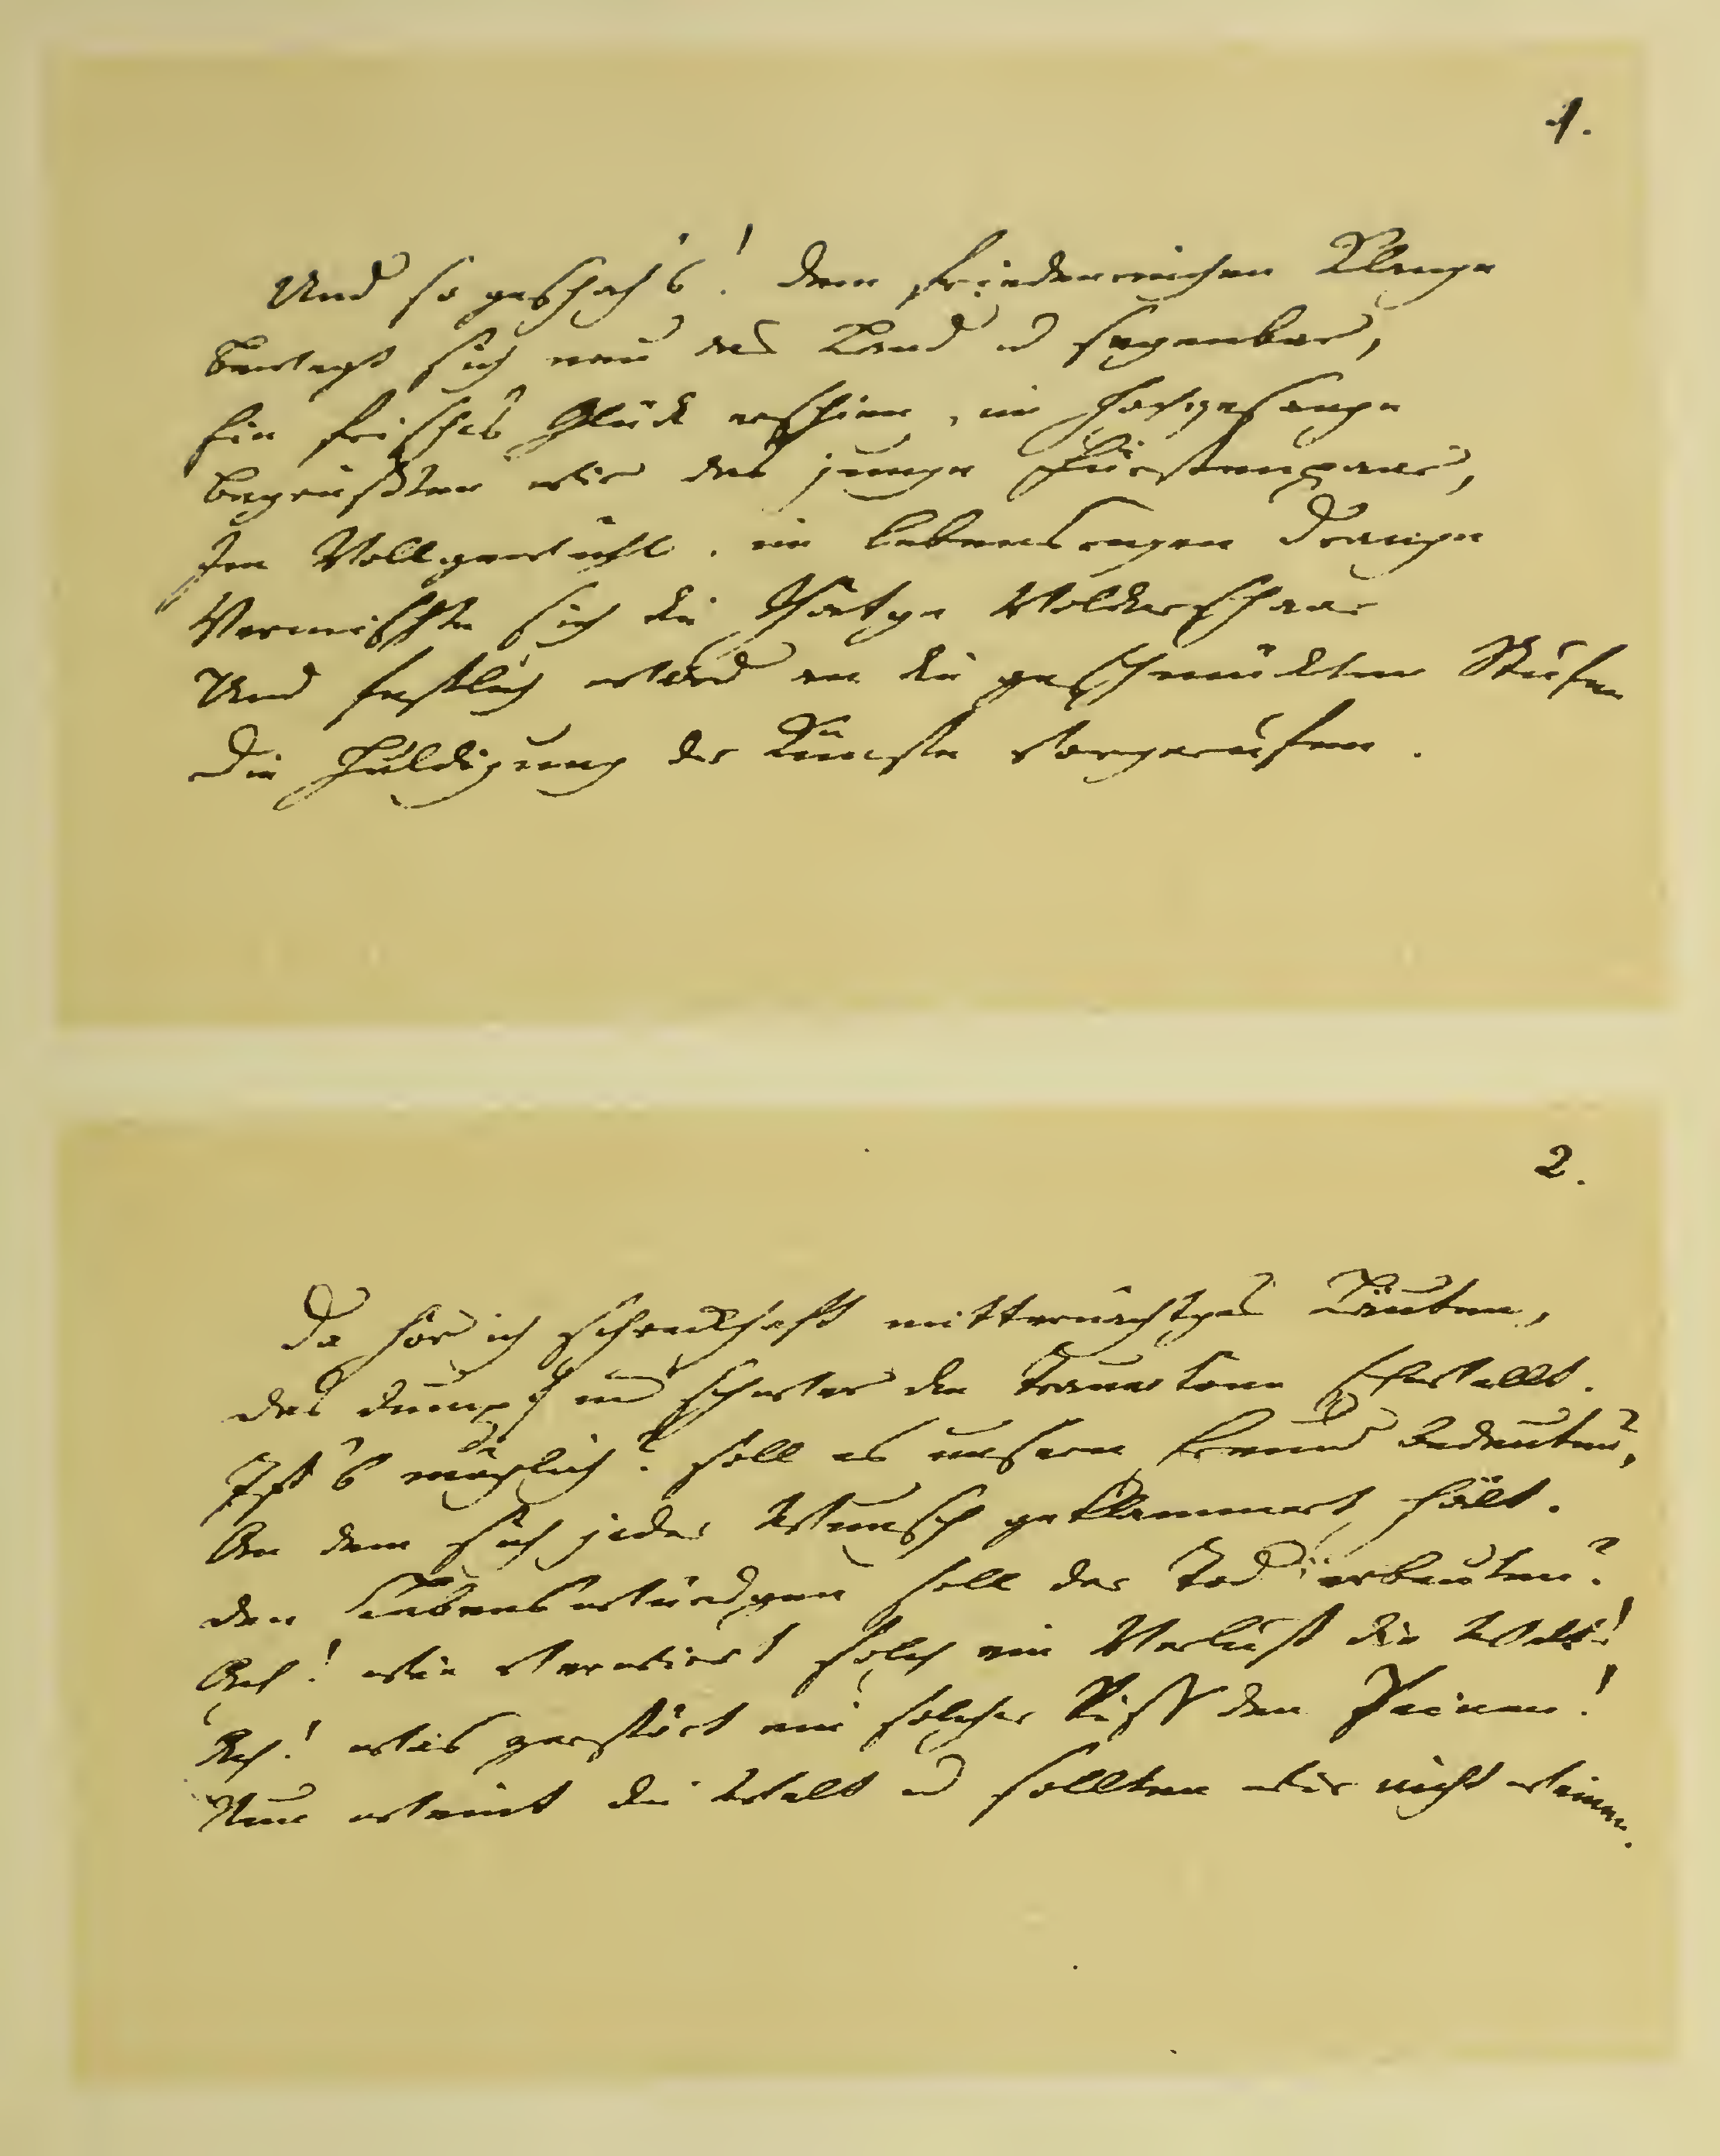 1.
Und so geschah's! Dem friedenreichen Klange
Bewegt sich neu das Land u segenbar,
Ein frisches Glück erschien, im Hochgesange
Begrüßten wir das junge Fürstenpaar,
Im Vollgewühl, im lebensregen Drange
Vermischte sich die thätge Völkerschaar
Und festlich ward an die geschmückten Stufen
Die Huldigung der Künste vorgerufen.
2.
Da hör ich schreckhaft mitternächtges Läuten,
Das dumpf und schwer die Trauertöne schwellt.
Ist's möglich? soll es unsern Freund bedeuten,
An dem sich jeder Wunsch geklammert hält.
Den Lebenswürdgen soll der Tod erbeuten?
Ach! wie verwirrt solch ein Verlust die Welt!
Ach! was zerstört ein solcher Riss den Seinen!
Nun weint die Welt u sollten wir nicht weinen.